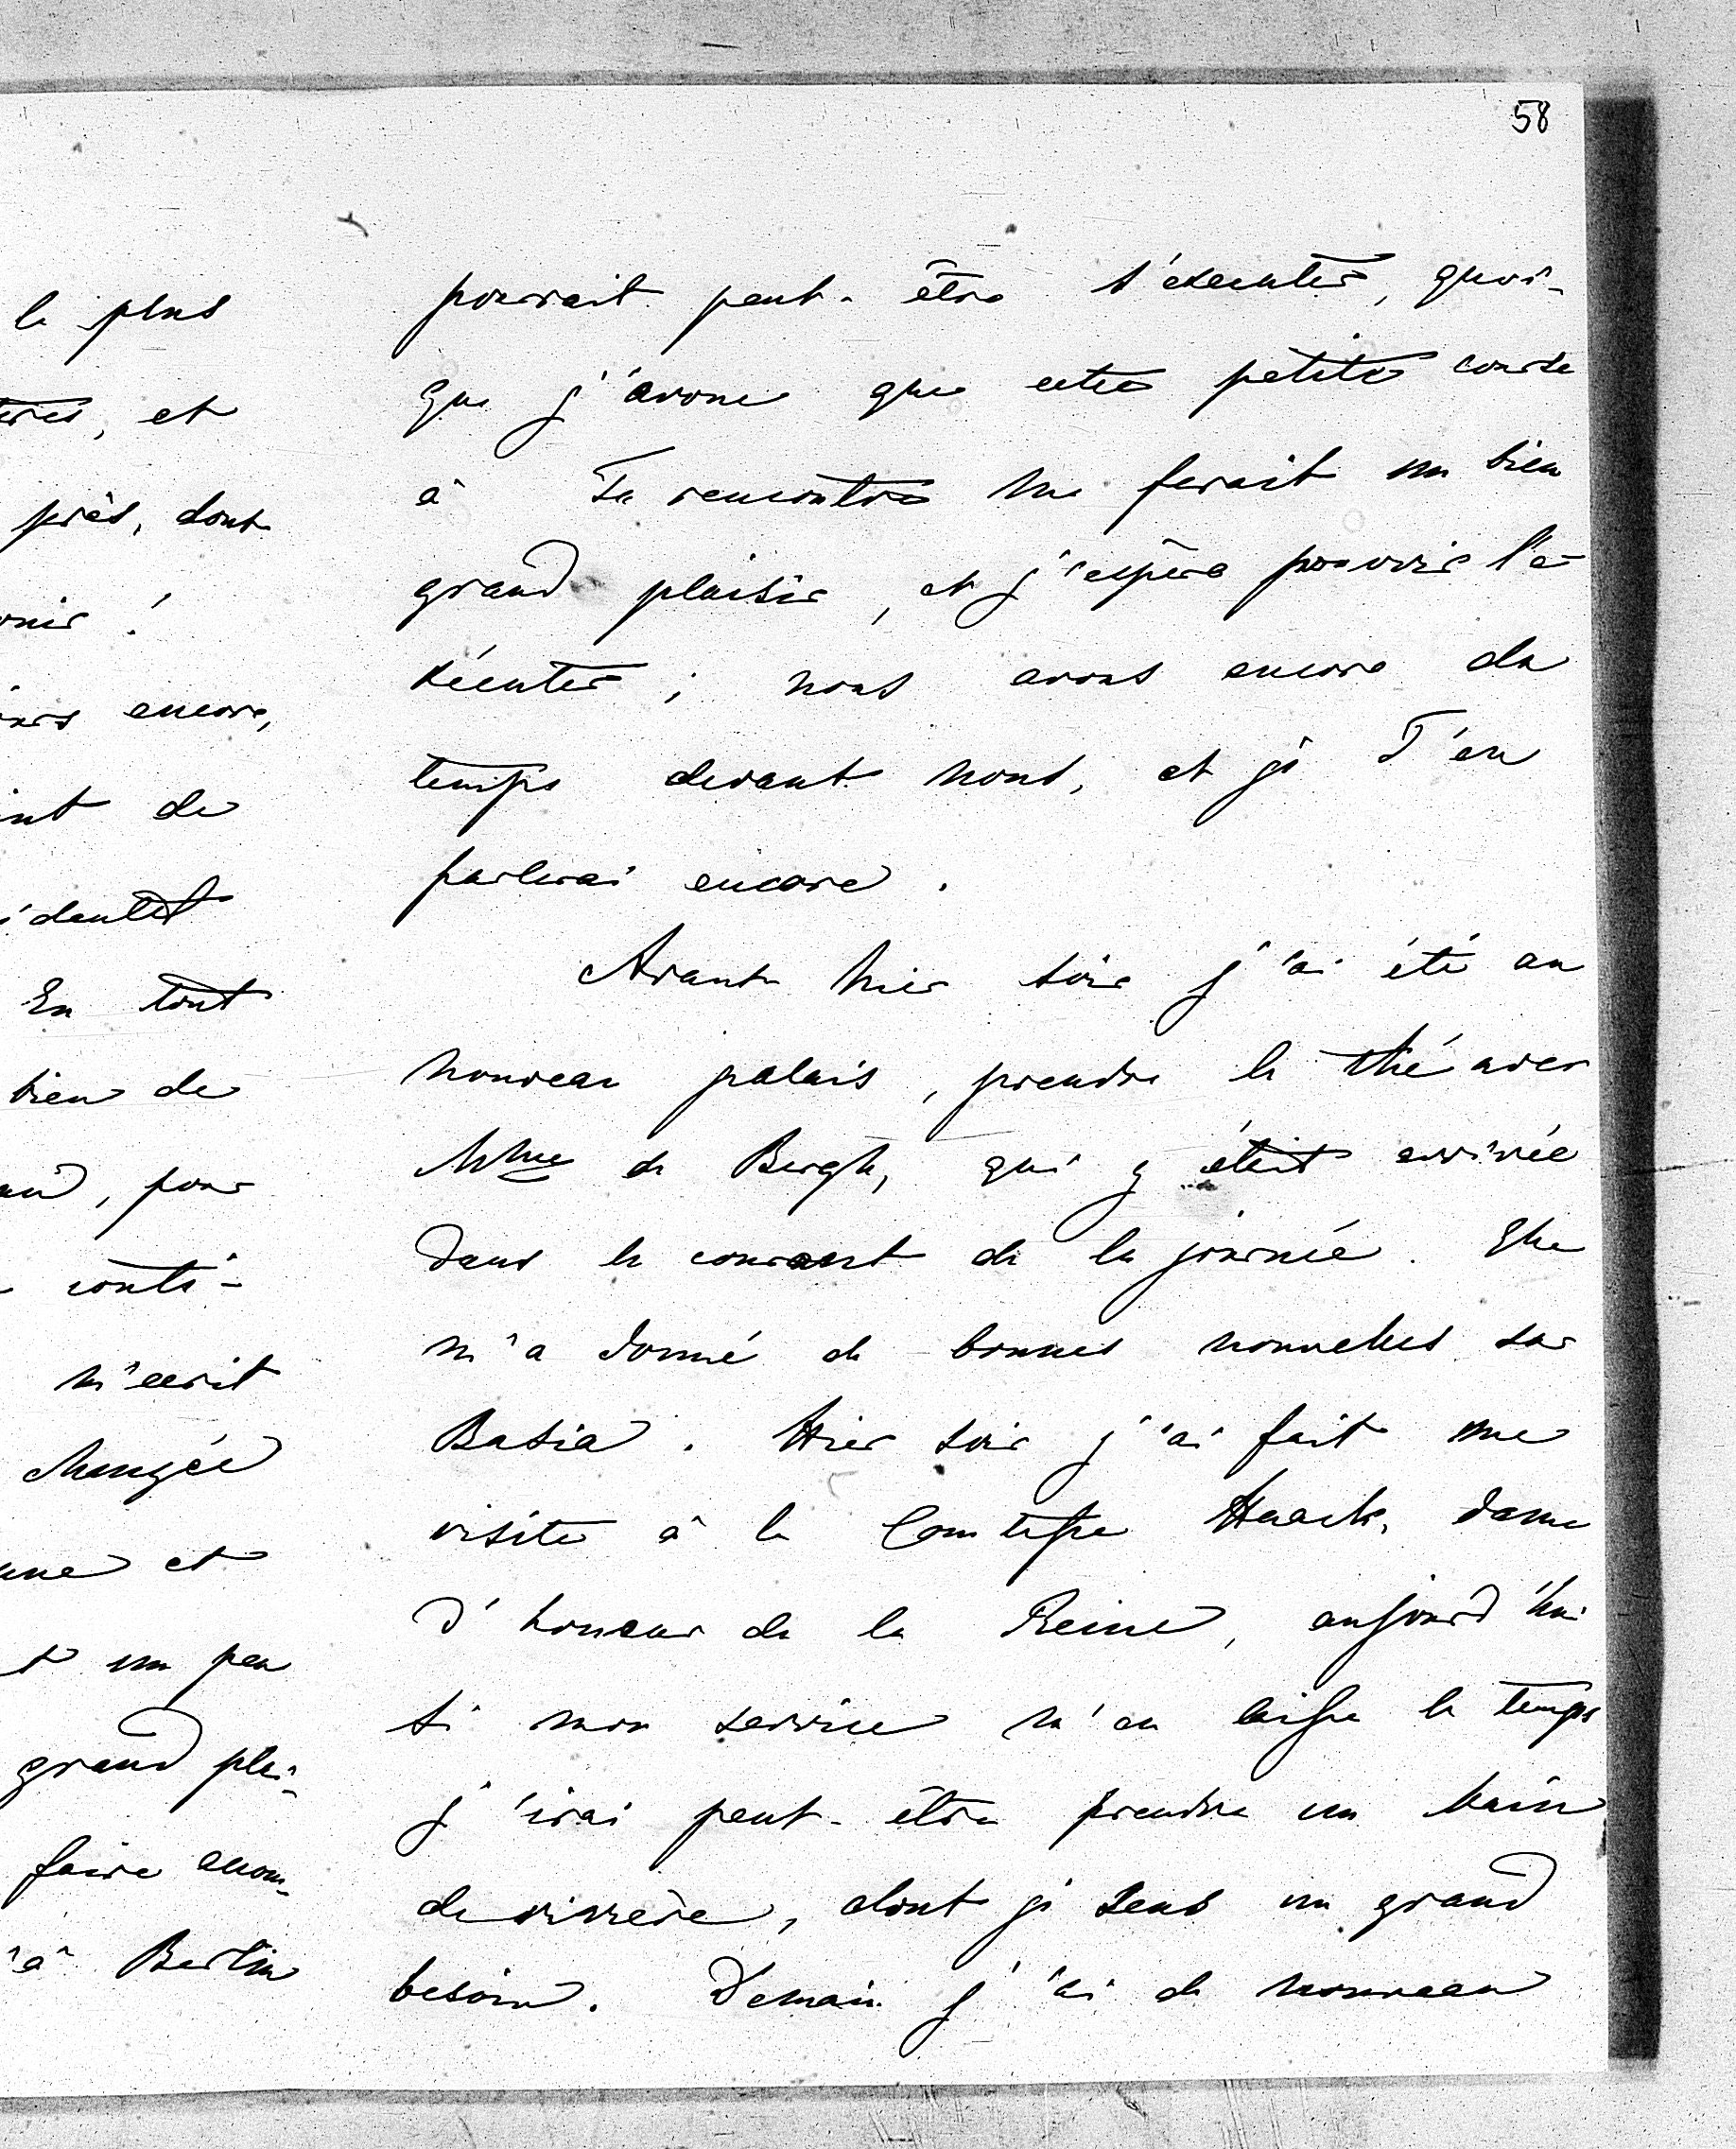 58
le plus
et
près, dont
encore,
de
En tout
bien de
, pour
conti-
m'ecrit
changée
et
un peu
grand plai-
faire accom-
à Berlin
pourrait peut-être s'executer, quoi-
que j'avoue que cette petite course
à Ta rencontre me ferait un bien
grand plaisir, et j'espère pouvoir l'e-
xécuter; nous avons encore du
temps devant nous, et je T'en
parlerai encore.
Avant hier soir j'ai été au
nouveau palais, prendre le thé avec
Mme de Bergh, qui y était arrivée
dans le courant de la journée. Elle
m'a donné de bonnes nouvelles sur
Basia. Hier soir j'ai fait une
visite à la Comtesse Haack, dame
d'honeur de la Reine, aujourd'hui
si mon service m'en laisse le temps
j'irai peut-être prendre un bain
de rivière, dont je sens un grand
besoin. Demain j'ai de nouveau